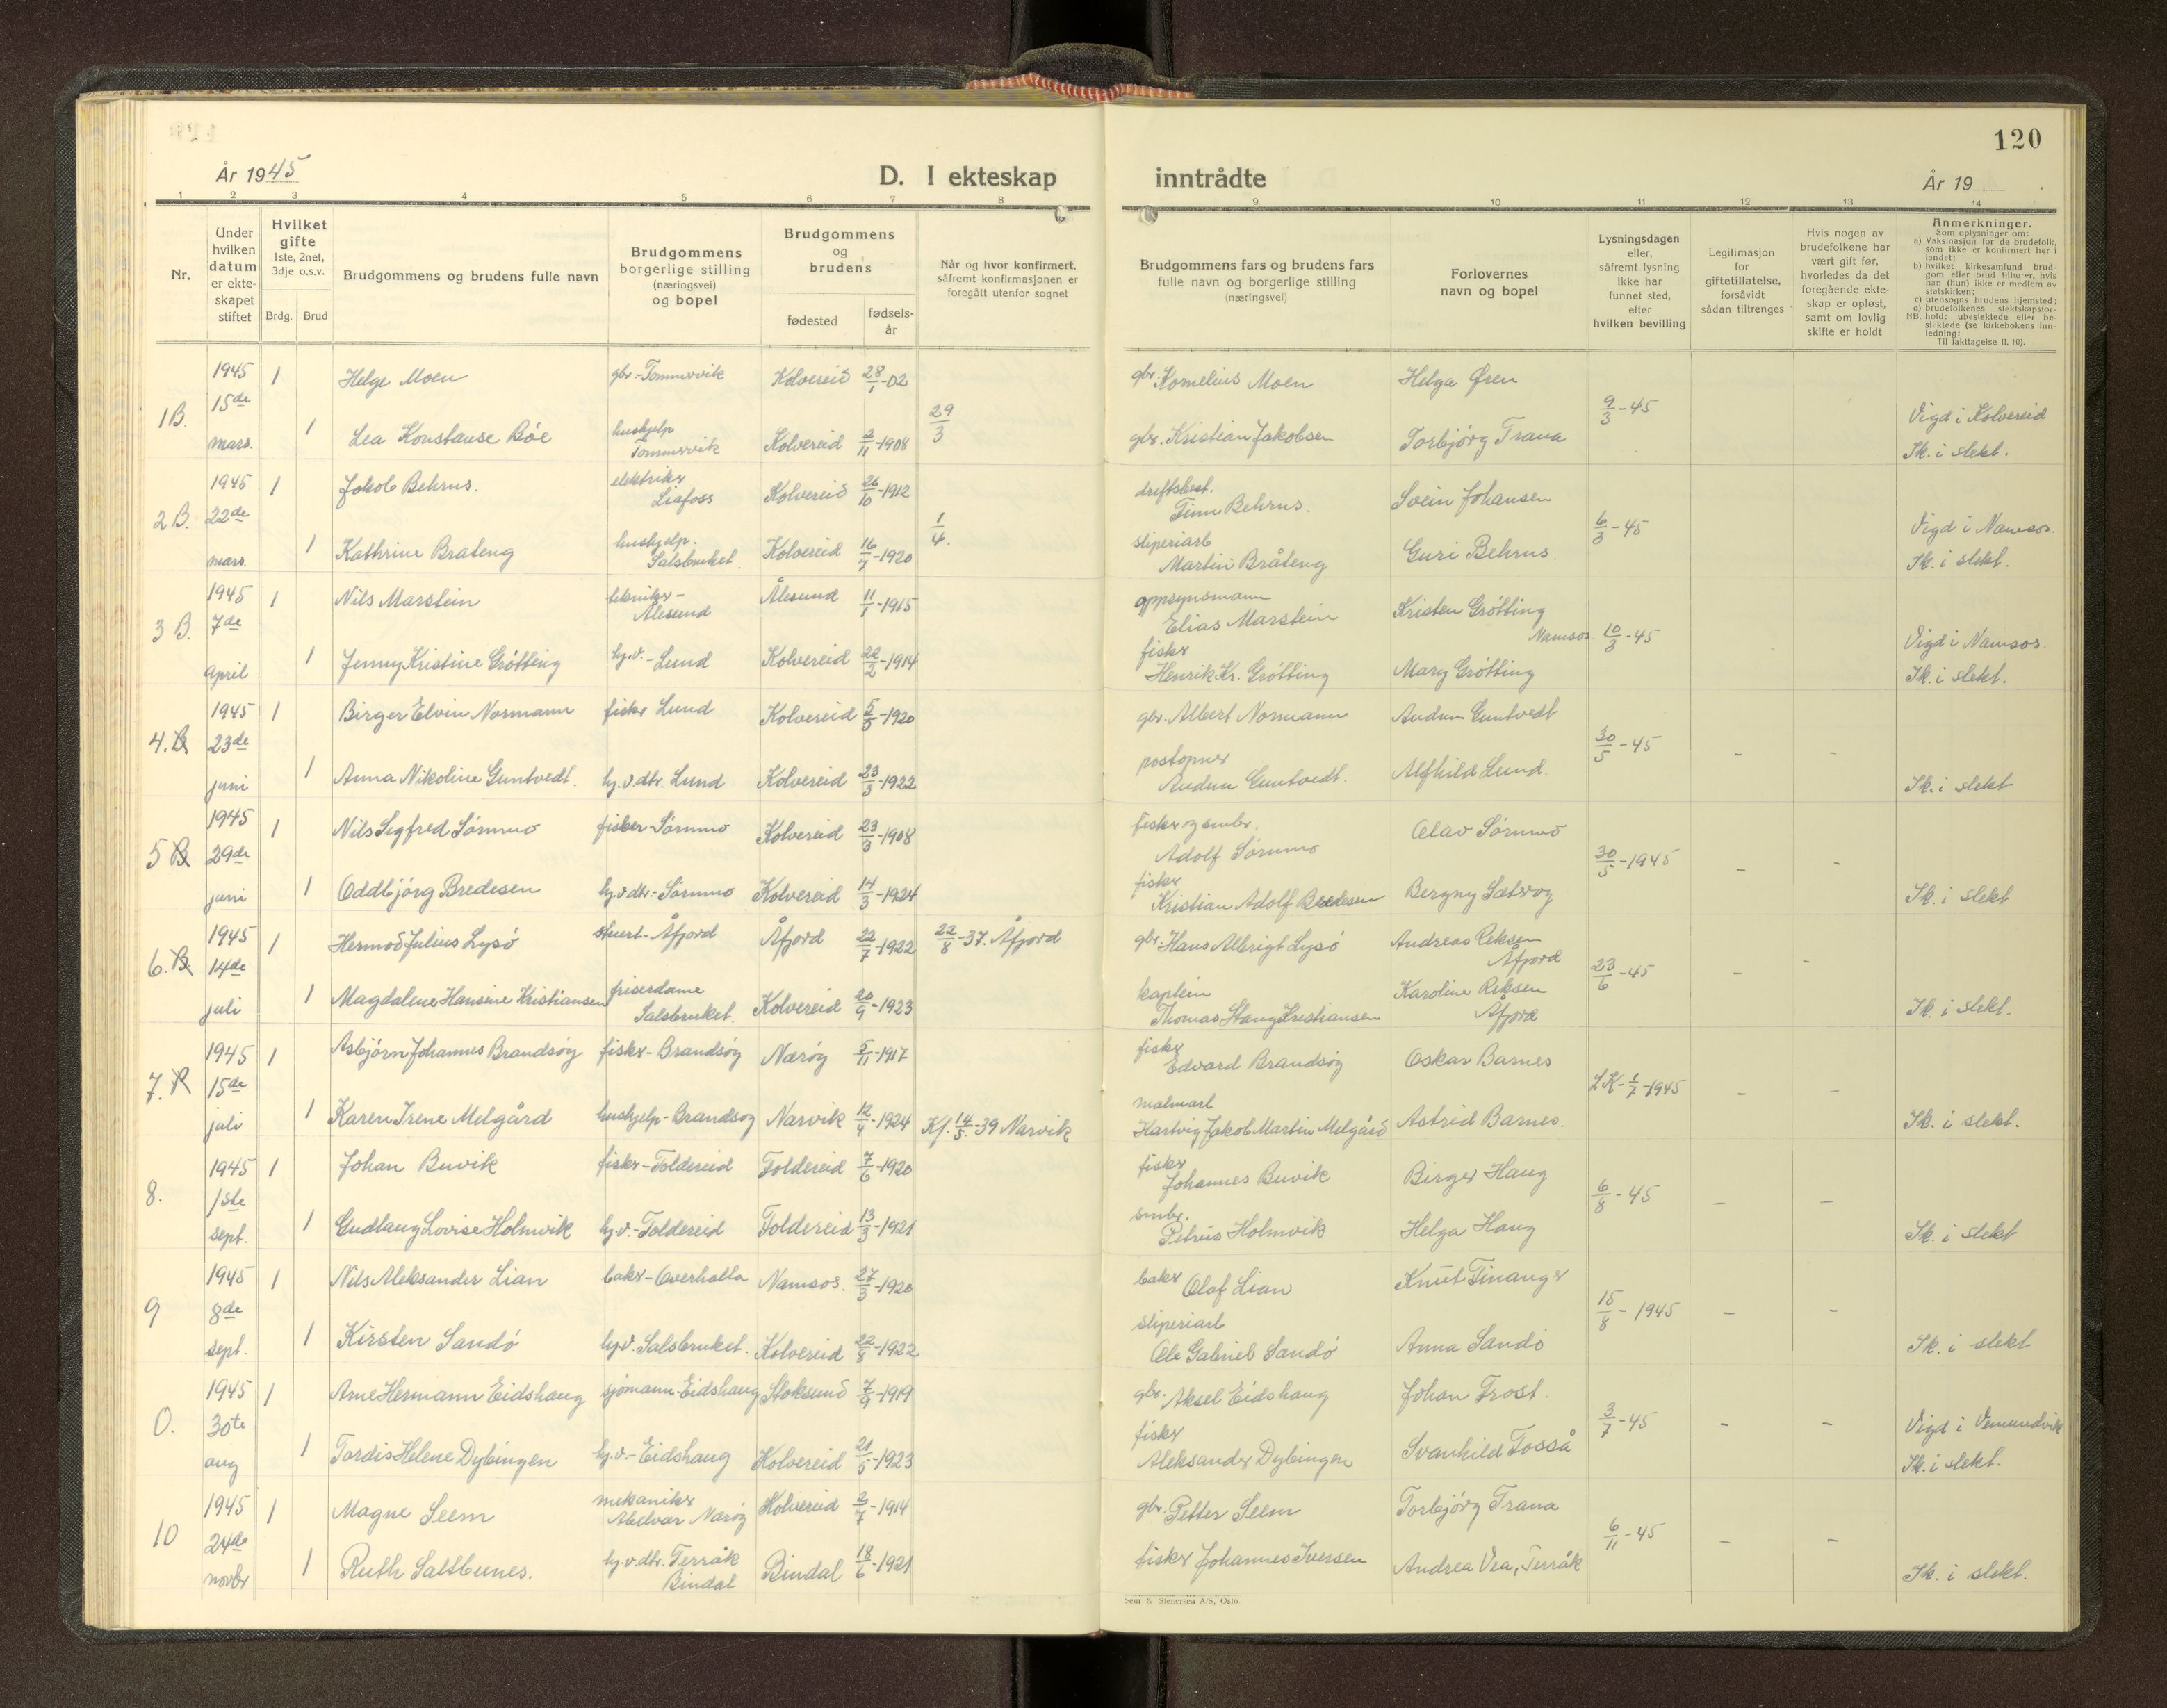 120
År 1945
D. I ekteskap inntrådte
År 19
1 2 3 4 5 6 7 8 9 10 11 12 13 14
Nr.
Under hvilken datum er ekteskapet stiftet
Hvilket gifte 1ste, 2net, 3dje o.s.v.
Brdg. Brud
Brudgommens og brudens fulle navn
Brudgommens borgerlige stilling (næringsvei) og bopel
Brudgommens og brudens
fødested
fødsels-år
Når og hvor konfirmert, såfremt konfirmasjonen er foregått utenfor sognet
Brudgommens fars og brudens fars fulle navn og borgerlige stilling (næringsvei)
Forlovernes navn og bopel
Lysningsdagen eller, såfremt lysning ikke har funnet sted, efter hvilken bevilling
Legitimasjon for giftetillatelse, forsåvidt sådan tiltrenges
Hvis nogen av brudefolkene har vært gift før, hvorledes da det foregående ekteskap er opløst, samt om lovlig skifte er holdt
Anmerkninger.
Som oplysninger om:
a) Vaksinasjon for de brudefolk, som ikke er konfirmert her i landet;
b) hvilket kirkesamfund brudgom eller brud tilhører, hvis han (hun) ikke er medlem av statskirken;
c) utensogns brudens hjemsted;
d) brudefolkenes slektskapsforhold: ubeslektede eller beslektede (se kirkebokens innledning:
NB.
Til iakttagelse II. 10).
1B. 1945 15de mars. 1 Helge Moen gbr.-Tommervik Kolvereid 28/1-02 gbr. Kornelius Moen Helga Øren
1 Lea Konstanse Bóe hushjelp Tommervik Kolvereid 2/11-1908 29/3 gbr. Kristian Jakobsen Torbjörg Trana 9/3-45 Vigd i Kolvereid Ik. i slekt.
2B. 1945 22de mars. 1 Jakob Behrns. elektriker Liafoss Kolvereid 26/10-1912 driftsbest. Finn Behrns. Svein Johansen
1 Kathrine Brateng hushjelp. Salsbruket. Kolvereid 16/7-1920 1/4. sliperiarb Martin Bråteng Guri Behrns. 6/3-45 Vigd i Namsos. Ik. i slekt.
3B. 1945 7de april 1 Nils Marstein tekniker-Ålesund Ålesund 11/1-1915 oppsynsmann Elias Marstein Kristen Grötting Namsos.
1 Jenny Kristine Grötting hj.v.-Lund Kolvereid 22/2-1914 fisker Henrik Kr. Grötting Mary Grötting 10/3-45 Vigd i Namsos. Ik. i slekt.
4.B 1945 23de juni 1 Birger Elvin Normann fisker Lund Kolvereid 5/5-1920 gbr. Albert Normann Audun Guntvedt
1 Anna Nikoline Guntvedt. hj.v.dtr. Lund Kolvereid 23/3-1922 postopner Audun Guntvedt. Alfhild Lund. 30/5-45 - - Ik. i slekt
5B 1945 29de juni 1 Nils Sigfred Sörmno fisker-Sörmno Kolvereid 23/3-1908 fisker og smbr. Adolf Sörmno Olav Sörmno
1 Oddbjörg Bredesen hj.v.dtr.-Sörmno Kolvereid 14/3-1924 fisker Kristian Adolf Bredesen Bergny Sætrog 30/5-1945 - - Ik. i slekt
6.B 1945 14de juli 1 Hermod Julius Lysö stuert-Åfjord Åfjord 22/7-1922 22/8-37. Åfjord gbr. Hans Albrigt Lysö Andreas Reksen Åfjord
1 Magdalene Hansine Kristiansen friserdame Salsbruket. Kolvereid 20/9-1923 kaptein Thomas Haug Kristiansen Karoline Reksen Åfjord 23/6-45 - - Ik. i slekt.
7. 1945 15de juli 1 Asbjörn Johannes Brandsöy fisker-Brandsöy Næröy 5/11-1917 fisker Edvard Brandsöy Oskar Barnes
1 Karen Irene Melgård hushjelp-Brandsöy Narvik 12/4-1924 Kf. 14/5-39 Narvik malmarb Hartvig Jakob Martin Melgård Astrid Barnes. LK-1/7-1945 - - Ik. i slekt.
8. 1945 1ste sept. 1 Johan Buvik fisker-Foldereid Foldereid 7/6-1920 fisker Johannes Buvik Birger Haug
1 Gudlaug Lovise Holmvik hj.v.-Foldereid Foldereid 13/3-1921 smbr. Petrus Holmvik Helga Haug 6/8-45 - - Ik. i slekt
9 1945 8de sept. 1 Nils Aleksander Lian baker-Overhalla Namsos. 27/3-1920 baker Olaf Lian Knut Finanger
1 Kirsten Sandö hj.v. Salsbruket. Kolvereid 22/8-1922 sliperiarb Ole Gabriel Sandö Anna Sandö 15/8-1945 - - Ik. i slekt
0. 1945 30te aug 1 Arne Hermann Eidshaug sjömann-Eidshaug Stoksund 7/9-1919 gbr. Aksel Eidshaug Johan Trost.
1 Tordis Helene Dybingen hj.v.-Eidshaug Kolvereid 21/5-1923 fisker Aleksander Dybingen Svanhild Fosså 3/7-45 - - Vigd i Vemundvik Ik. i slekt.
10 1945 24de novbr 1 Magne Seem mekaniker Abelvær Næröy Kolvereid 2/7-1914 gbr. Petter Seem Torbjörg Trana
1 Ruth Saltbunes. hj.v.dtr. Terråk Bindal Bindal 18/6-1921 fisker Johannes Iversen Andrea Vea, Terråk 6/11-45 - - Ik. i slekt.
Sem & Stenersen A/S, Oslo.